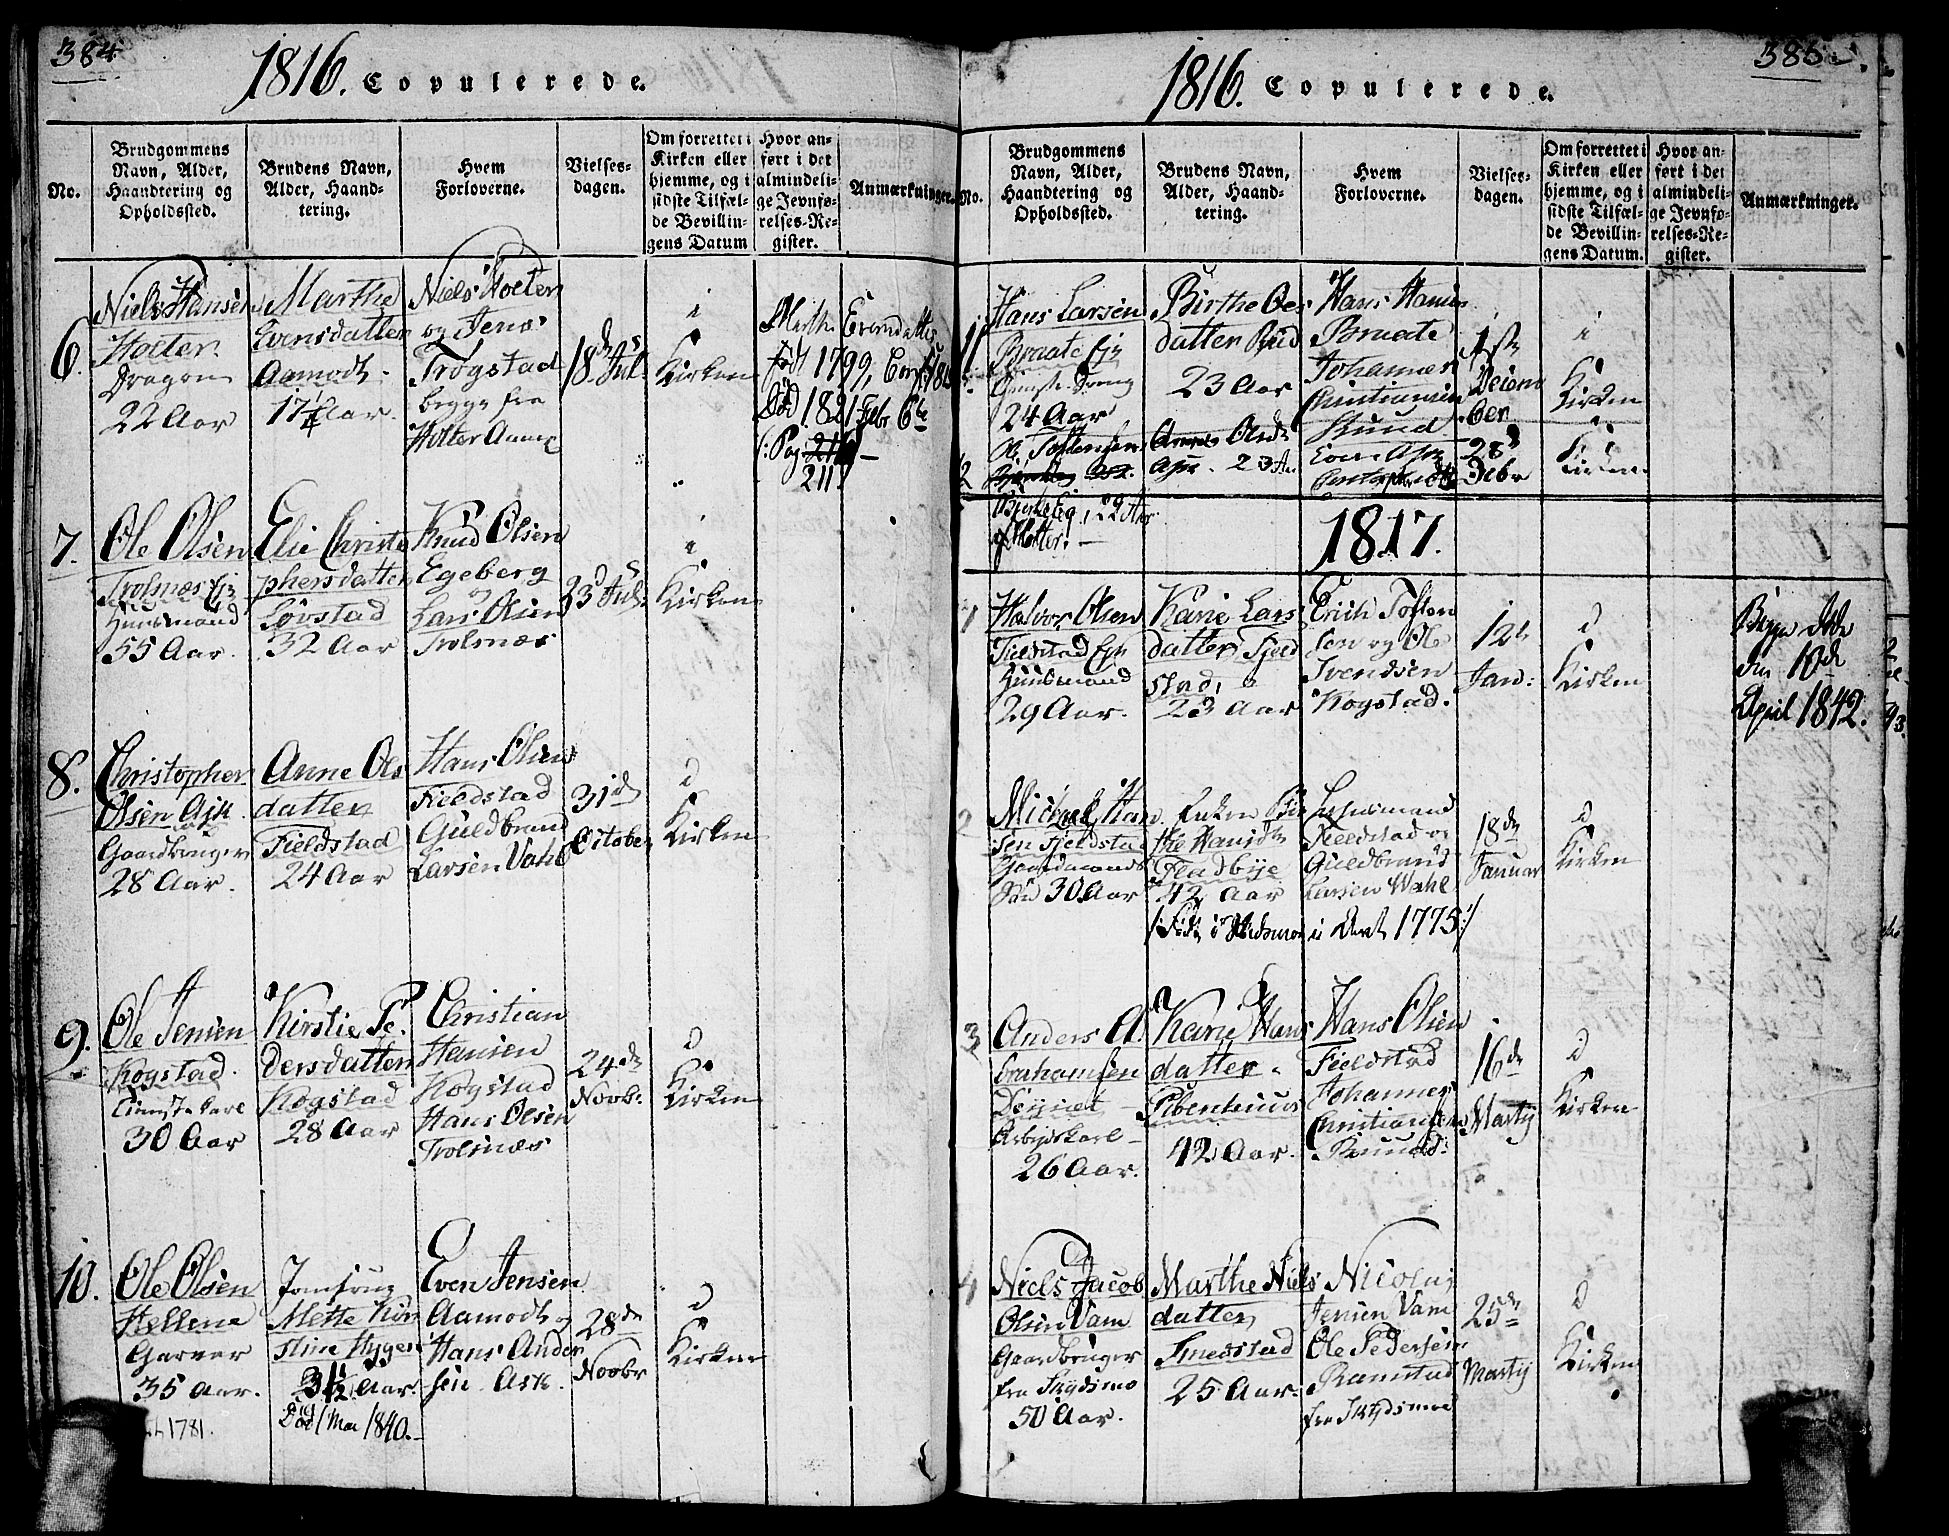 384
1816. Copulerede.
No.
Brudgommens
Navn, Alder,
Haandtering og
Opholdssted.
Brudens Navn,
Alder, Haand-
tering.
Hvem
Forloverne.
Vielses-
dagen.
Om forrettet i
Kirken eller
hjemme, og i
sidste Tilfæl-
de Bevillin-
gens Datum
Hvor an-
ført i det
almindeli-
ge Jevnfø-
relses-Re-
gister.
Anmærkninger.
6.
Niels Hansen
Holter
Dragon
22 Aar
Marthe
Evensdatter
Aamodt
17 Aar.
Niels Holter
og Jens
Trøgstad
begge fra
Holter Annex
18de Jul.
i
Kirken
født 1799,
Død 1821 Febr 6te
/: Pag
211
7.
Ole Olsen
Trolnæs Eje
Huusmand
55 Aar.
Elie Christo
phersdatter
Løvstad
32 Aar
Knud Olsen
Egeberg
Lars Olsen
Trolnæs
23d Jul.
i
Kirken
8.
Christopher
Olsen Ask
Gaardbruger
28 Aar.
Anne Ols
datter
Fieldstad
24 Aar
Hans Olsen
Fieldstad
Guldbrand
Larsen Vahl
31de
October
i
Kirken
9.
Ole Jensen
Kogstad.
Tienstekarl
30 Aar
Kirstie Pe
dersdatter
Kogstad
28 Aar
Christian
Hansen
Kogstad
Hans Olsen
Trolnæs
24de
Novbr.
i
Kirken
10.
Ole Olsen
Hellene
Garver
35 Aar.
1781.
Jomfrue
Mette Kir
stine Hygen
31½ Aar.
Død 1840.
Even Jensen
Aamodt og
Hans Ander
sen Ask.
28de
Novbr
i
Kirken
385
1816. Copulerede.
No.
Brudgommens
Navn, Alder,
Haandtering og
Opholdssted.
Brudens Navn,
Alder, Haand-
tering.
Hvem
Forloverne.
Vielses-
dagen.
Om forrettet i
Kirken eller
hjemme, og i
sidste Tilfæl-
de Bevillin-
gens Datum.
Hvor an-
ført i det
almindeli-
ge Jevnfø-
relses-Re-
gister.
Anmærkninger.
11.
Hans Larsen
Braate Eje
24 Aar
Birthe Ols
datter Rud
23 Aar
Hans Hansen
Braate
Johannes
Christiansen
Ruud
1ste
Decem
ber
i
Kirken
12
Ole Toftensen
Bjerkelig, 22 Aar
Olsdr
Ask. 23 Aar
Even Ask
28d
Decbr
i
Kirken
1817.
1
Halvor Olsen
Fieldstad Eje
Huusmand
29 Aar.
Karie Lars
datter Field
stad,
23 Aar
Erich Toften
sen og Ole
Svendsen
Kogstad.
12te
Jan:
i
Kirken
Begge døde
den 10de
April 1842.
2
Michael Han
sen Fjeldstad
Gaardmands
Søn 30 Aar
Enken Bir
the Hansdtr
Fladbye
42 Aar
/: Født i Hedemarken i Aaret 1775 :/
Lehnsmand
Fieldstad og
Guldbrand
Larsen Wahl
18de
Januar
i
Kirken
3
Anders A
brahamsen
Arbejdskarl
26 Aar.
Karie Hans
datter
Pibenhuus
42 Aar.
Hans Olsen
Fieldstad
Johannes
Christiansen
Ruud
16de
Martij
i
Kirken
4
Niels Jacob
Olsen Vam
Gaardbruger
fra Skydsmo
50 Aar.
Marthe Niels
datter
Smedstad
25 Aar.
Nicolaj
Jensen Vam
Ole Pedersen
Ramstad
fra Skydsmoe
25de
Martij
i
Kirken